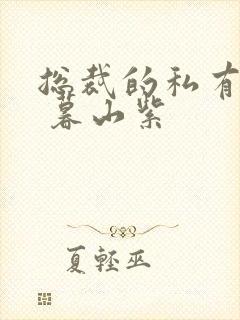 总裁的私有
暮山紫
夏轻巫